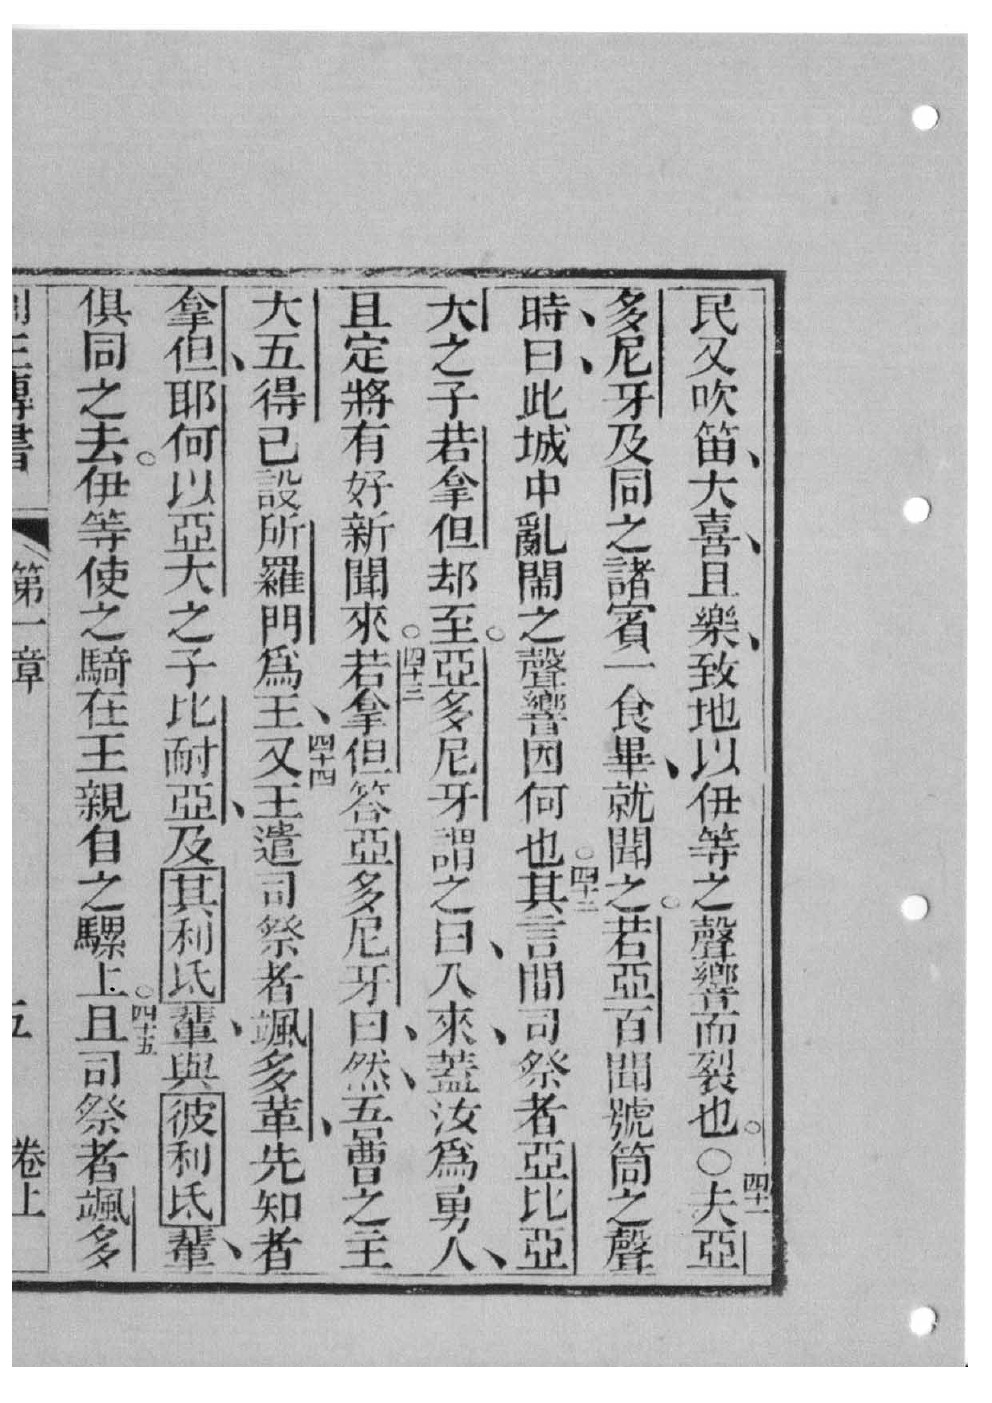 民又吹笛、大喜、且樂、致地以伊等之聲響而裂也。○四十一夫亞
多尼牙及同之諸賓一食畢、就聞之。若亞百聞號筒之聲
時、曰、此城中亂鬧之聲響因何也。四十二其言間司祭者亞比亞
大之子若拿但却至。亞多尼牙謂之曰、入來、蓋汝為勇人、
且定將有好新聞來。四十三若拿但答亞多尼牙曰、然、吾曹之主
大五得已設所羅門爲王、四十四又王遣司祭者颯多革、先知者
拿但、耶何以亞大之子比耐亞、及其利氐輩、與彼利氐輩、
俱同之去。伊等使之騎在王親自之騾上。四十五且司祭者颯多
列王傳書 第一章 五 卷上